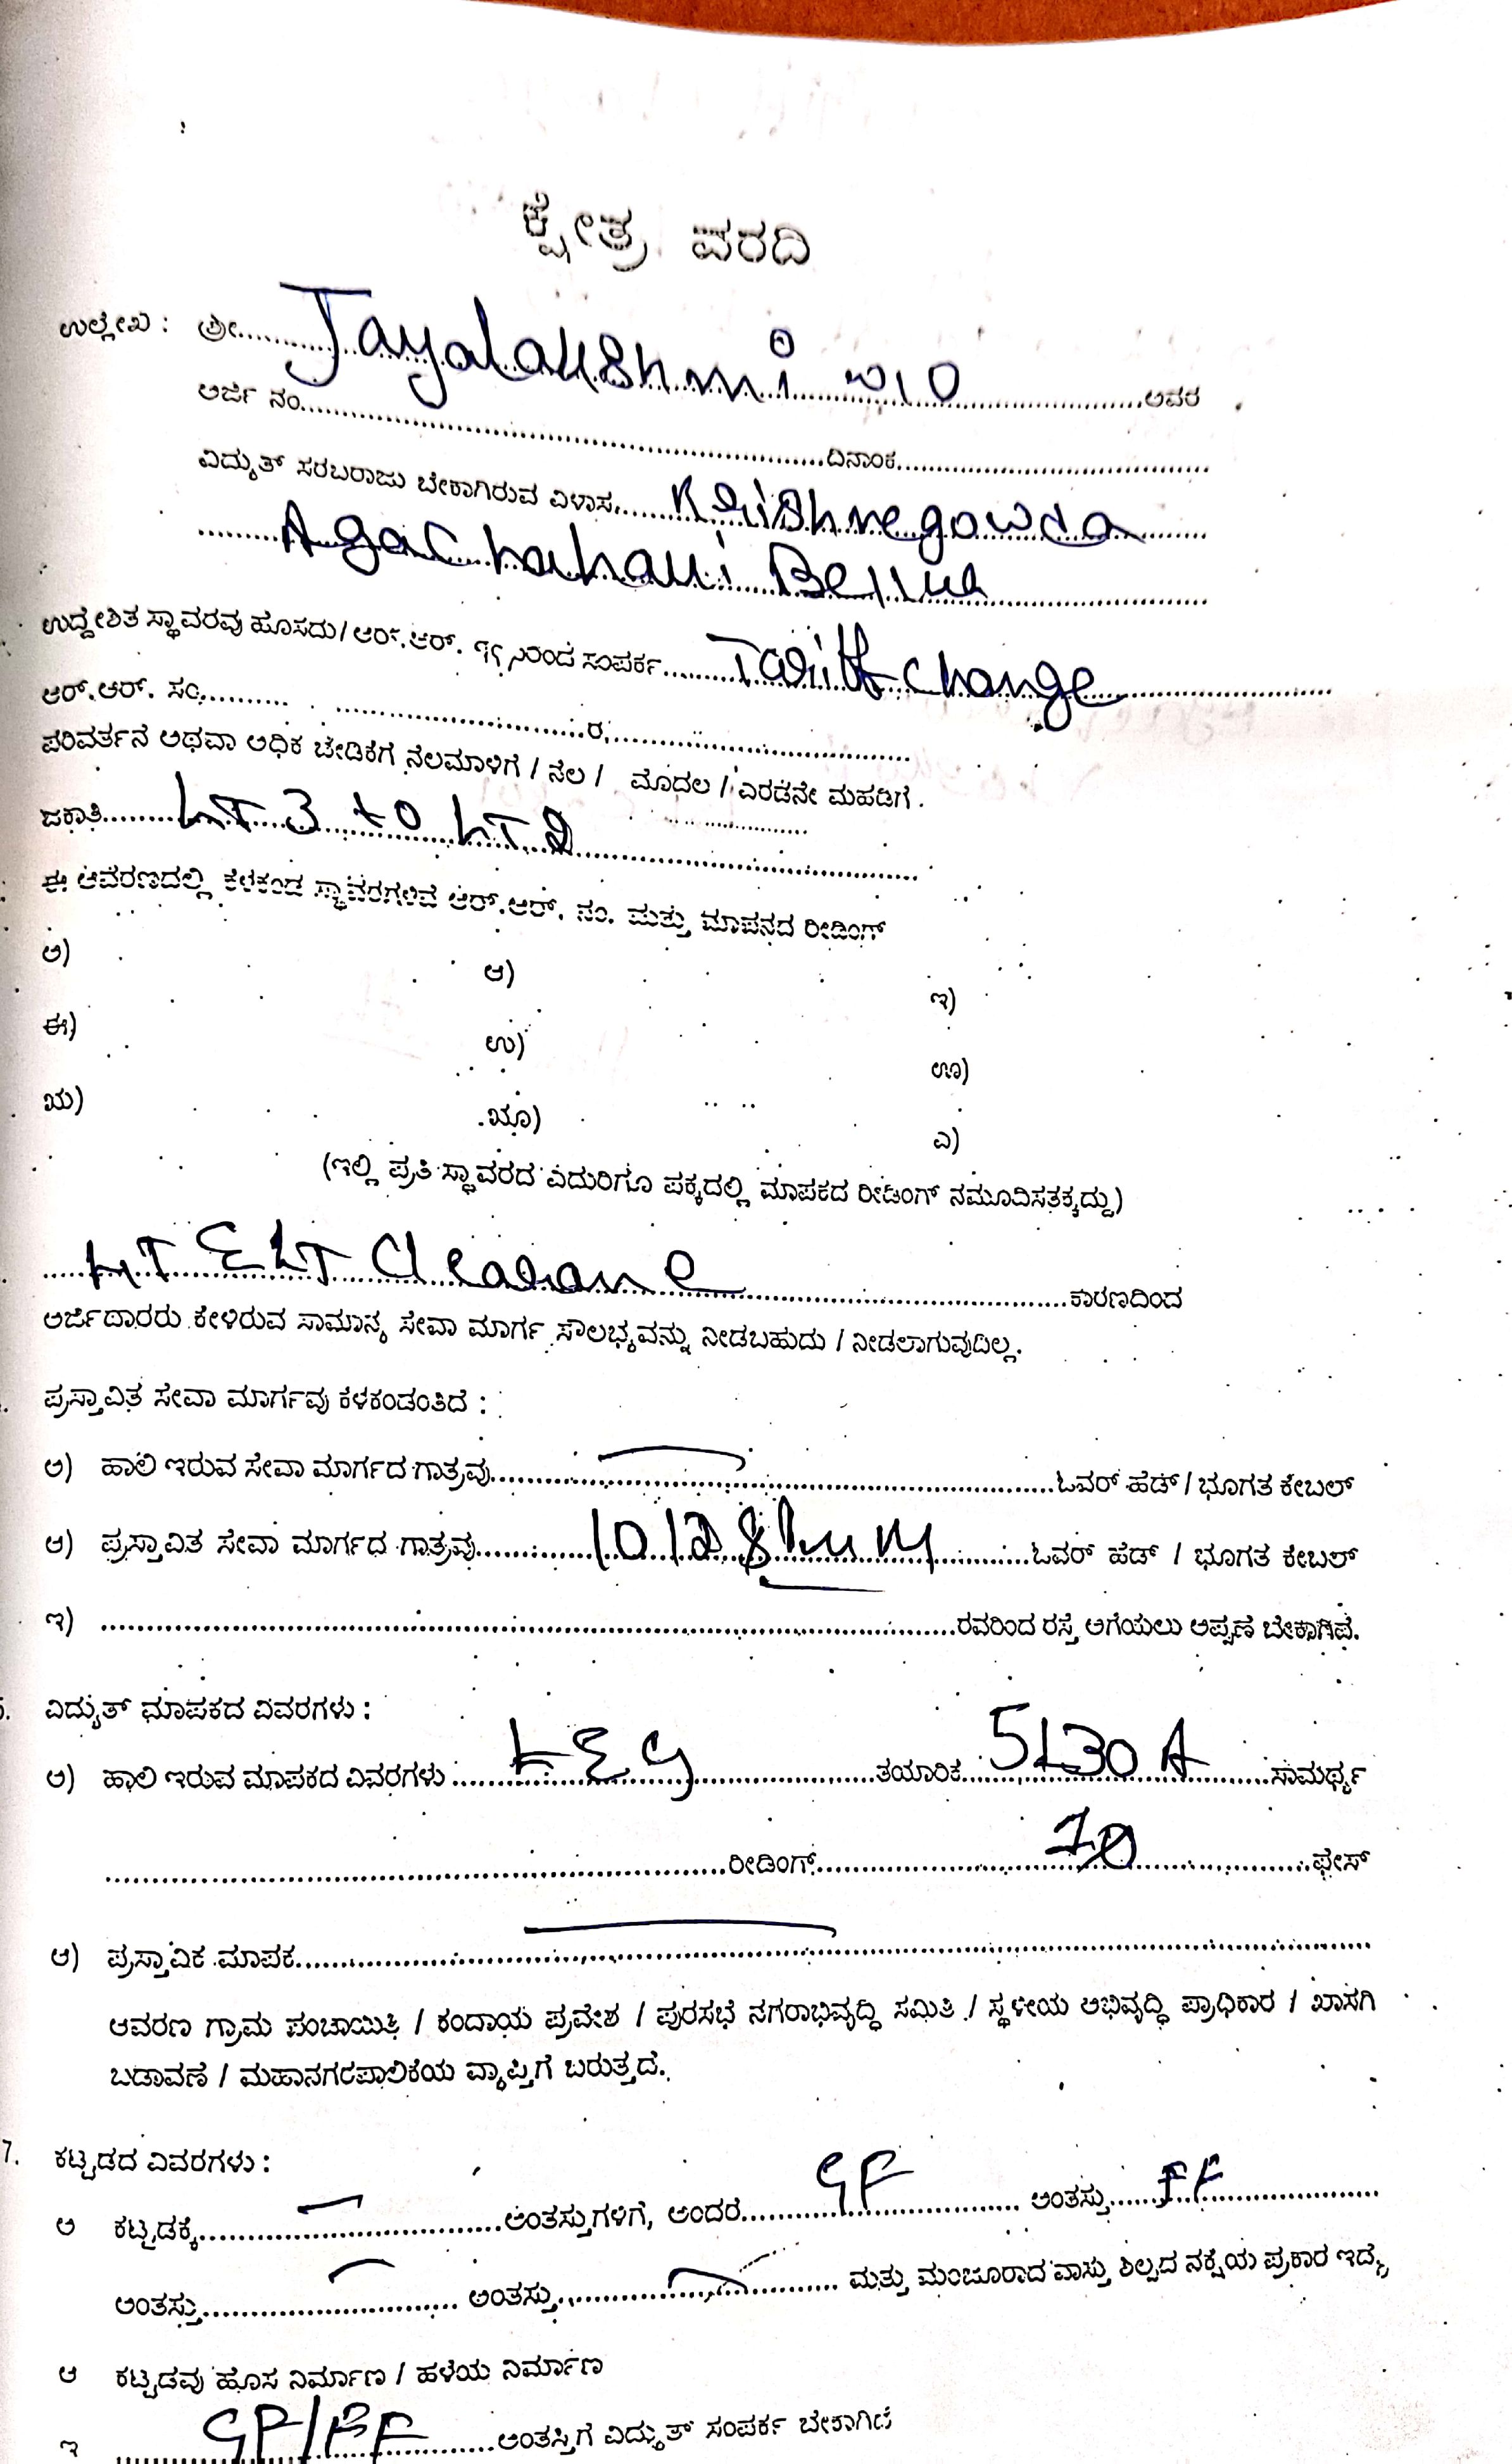 ಕ್ಷೇತ್ರ ವರದಿ
ಉಲ್ಲೇಖ : ಶ್ರೀ.......... Jayalakshmi w/o ..........ಅವರ
ಅರ್ಜಿ ನಂ..........ದಿನಾಂಕ..........
ವಿದ್ಯುತ್ ಸರಬರಾಜು ಬೇಕಾಗಿರುವ ವಿಳಾಸ.......... Krishnegowda
.......... Agachahalli ..........
ಉದ್ದೇಶಿತ ಸ್ಥಾವರವು ಹೊಸದು/ಆರ್.ಆರ್. ಸಂಪರ್ಕ.......... Tariff change
ಆರ್.ಆರ್. ಸಂ..........ರ..........
ಪರಿವರ್ತನೆ ಅಥವಾ ಅಧಿಕ ಬೇಡಿಕೆಗೆ ನೆಲಮಾಳಿಗೆ / ನೆಲ / ಮೊದಲ / ಎರಡನೇ ಮಹಡಿಗೆ .
ಜಕಾತಿ.......... LT 3 to LT 2 ..........
ಈ ಆವರಣದಲ್ಲಿ ಕೆಳಕಂಡ ಸ್ಥಾವರಗಳಿವೆ ಆರ್.ಆರ್. ನಂ. ಮತ್ತು ಮಾಪನದ ರೀಡಿಂಗ್
ಅ) ಆ) ಇ)
ಈ) ಉ) ಊ)
ಋ) ೠ) ಎ)
(ಇಲ್ಲಿ ಪ್ರತಿ ಸ್ಥಾವರದ ಎದುರಿಗೂ ಪಕ್ಕದಲ್ಲಿ ಮಾಪಕದ ರೀಡಿಂಗ್ ನಮೂದಿಸತಕ್ಕದ್ದು)
.......... HT & LT Clearance ..........ಕಾರಣದಿಂದ
ಅರ್ಜಿದಾರರು ಕೇಳಿರುವ ಸಾಮಾನ್ಯ ಸೇವಾ ಮಾರ್ಗ ಸೌಲಭ್ಯವನ್ನು ನೀಡಬಹುದು / ನೀಡಲಾಗುವುದಿಲ್ಲ.
ಪ್ರಸ್ತಾವಿತ ಸೇವಾ ಮಾರ್ಗವು ಕೆಳಕಂಡಂತಿದೆ :
ಅ) ಹಾಲಿ ಇರುವ ಸೇವಾ ಮಾರ್ಗದ ಗಾತ್ರವು..........ಓವರ್ ಹೆಡ್ / ಭೂಗತ ಕೇಬಲ್
ಆ) ಪ್ರಸ್ತಾವಿತ ಸೇವಾ ಮಾರ್ಗದ ಗಾತ್ರವು..........ಓವರ್ ಹೆಡ್ / ಭೂಗತ ಕೇಬಲ್
ಇ) ..........ರವರಿಂದ ರಸ್ತೆ ಅಗೆಯಲು ಅಪ್ಪಣೆ ಬೇಕಾಗಿದೆ.
ವಿದ್ಯುತ್ ಮಾಪಕದ ವಿವರಗಳು :
ಅ) ಹಾಲಿ ಇರುವ ಮಾಪಕದ ವಿವರಗಳು..........ತಯಾರಿಕೆ.......... 30 A ..........ಸಾಮರ್ಥ್ಯ
..........ರೀಡಿಂಗ್.......... 1Ø ..........ಫೇಸ್
ಆ) ಪ್ರಸ್ತಾವಿಕ ಮಾಪಕ..........
ಆವರಣ ಗ್ರಾಮ ಪಂಚಾಯಿತಿ / ಕಂದಾಯ ಪ್ರವೇಶ / ಪುರಸಭೆ ನಗರಾಭಿವೃದ್ಧಿ ಸಮಿತಿ / ಸ್ಥಳೀಯ ಅಭಿವೃದ್ಧಿ ಪ್ರಾಧಿಕಾರ / ಖಾಸಗಿ
ಬಡಾವಣೆ / ಮಹಾನಗರಪಾಲಿಕೆಯ ವ್ಯಾಪ್ತಿಗೆ ಬರುತ್ತದೆ.
7. ಕಟ್ಟಡದ ವಿವರಗಳು :
ಅ ಕಟ್ಟಡಕ್ಕೆ..........ಅಂತಸ್ತುಗಳಿಗೆ, ಅಂದರೆ.......... GF .......... ಅಂತಸ್ತು.......... FF ..........
ಅಂತಸ್ತು.......... ಅಂತಸ್ತು.......... ಮತ್ತು ಮಂಜೂರಾದ ವಾಸ್ತು ಶಿಲ್ಪದ ನಕ್ಷೆಯ ಪ್ರಕಾರ ಇದ್ದು
ಆ ಕಟ್ಟಡವು ಹೊಸ ನಿರ್ಮಾಣ / ಹಳೆಯ ನಿರ್ಮಾಣ
ಇ .......... GF/FF ..........ಅಂತಸ್ತಿಗೆ ವಿದ್ಯುತ್ ಸಂಪರ್ಕ ಬೇಕಾಗಿದೆ